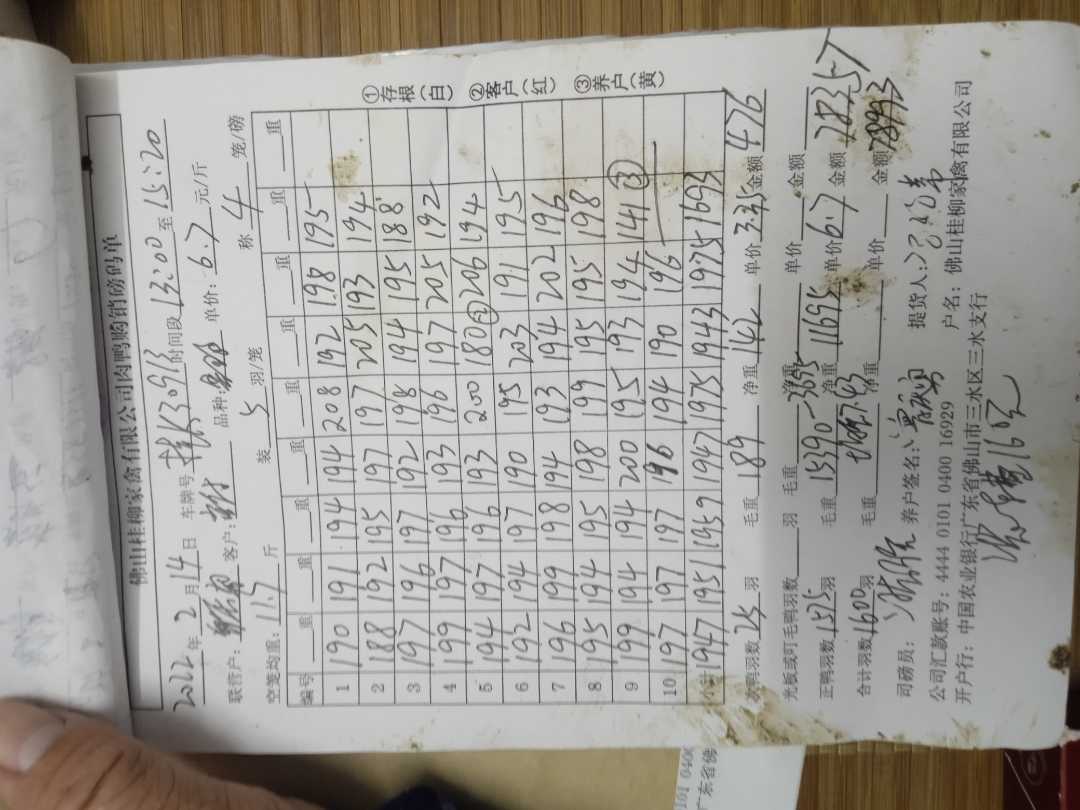 佛山桂柳家禽有限公司肉鸭购销磅码单
2022年2月14日 车牌号 桂K30913 时间段 13:00 至 15:20
联营户: 客户: 品种 单价: 6.7 元/斤
空笼均重: 11.7 斤 装 5 羽/笼 称 4 笼/磅
编号 重 重 重 重 重 重 重 重 重
1 190 191 194 194 208 192 198 195
2 188 192 195 197 197 205 193 194
3 197 196 197 192 198 194 195 188
4 199 197 196 193 196 197 205 192
5 194 197 196 193 200 180② 206 194
6 192 194 197 190 195 203 191 195
7 196 199 198 194 193 194 202 196
8 195 194 195 198 199 195 195 198
9 199 194 194 200 195 193 194 141③
10 197 197 197 196 194 190 196
小计 1947 1951 1959 1947 1975 1943 1975 1693
次鸭羽数 25 羽 毛重 189 净重 142 单价 3.35 金额 476
光板或叮毛鸭羽数 羽 毛重 净重 单价 金额
正鸭羽数 1575 羽 毛重 15390 -3695 净重 11695 单价 6.7 金额 78357
合计羽数 1600 羽 毛重 净重 单价 金额 78893
司磅员: 养户签名: 提货人:
公司汇款账号: 4444 0101 0400 16929 户名: 佛山桂柳家禽有限公司
开户行: 中国农业银行广东省佛山市三水区三水支行
①存根(白) ②客户(红) ③养户(黄)
101 0400
广东省佛